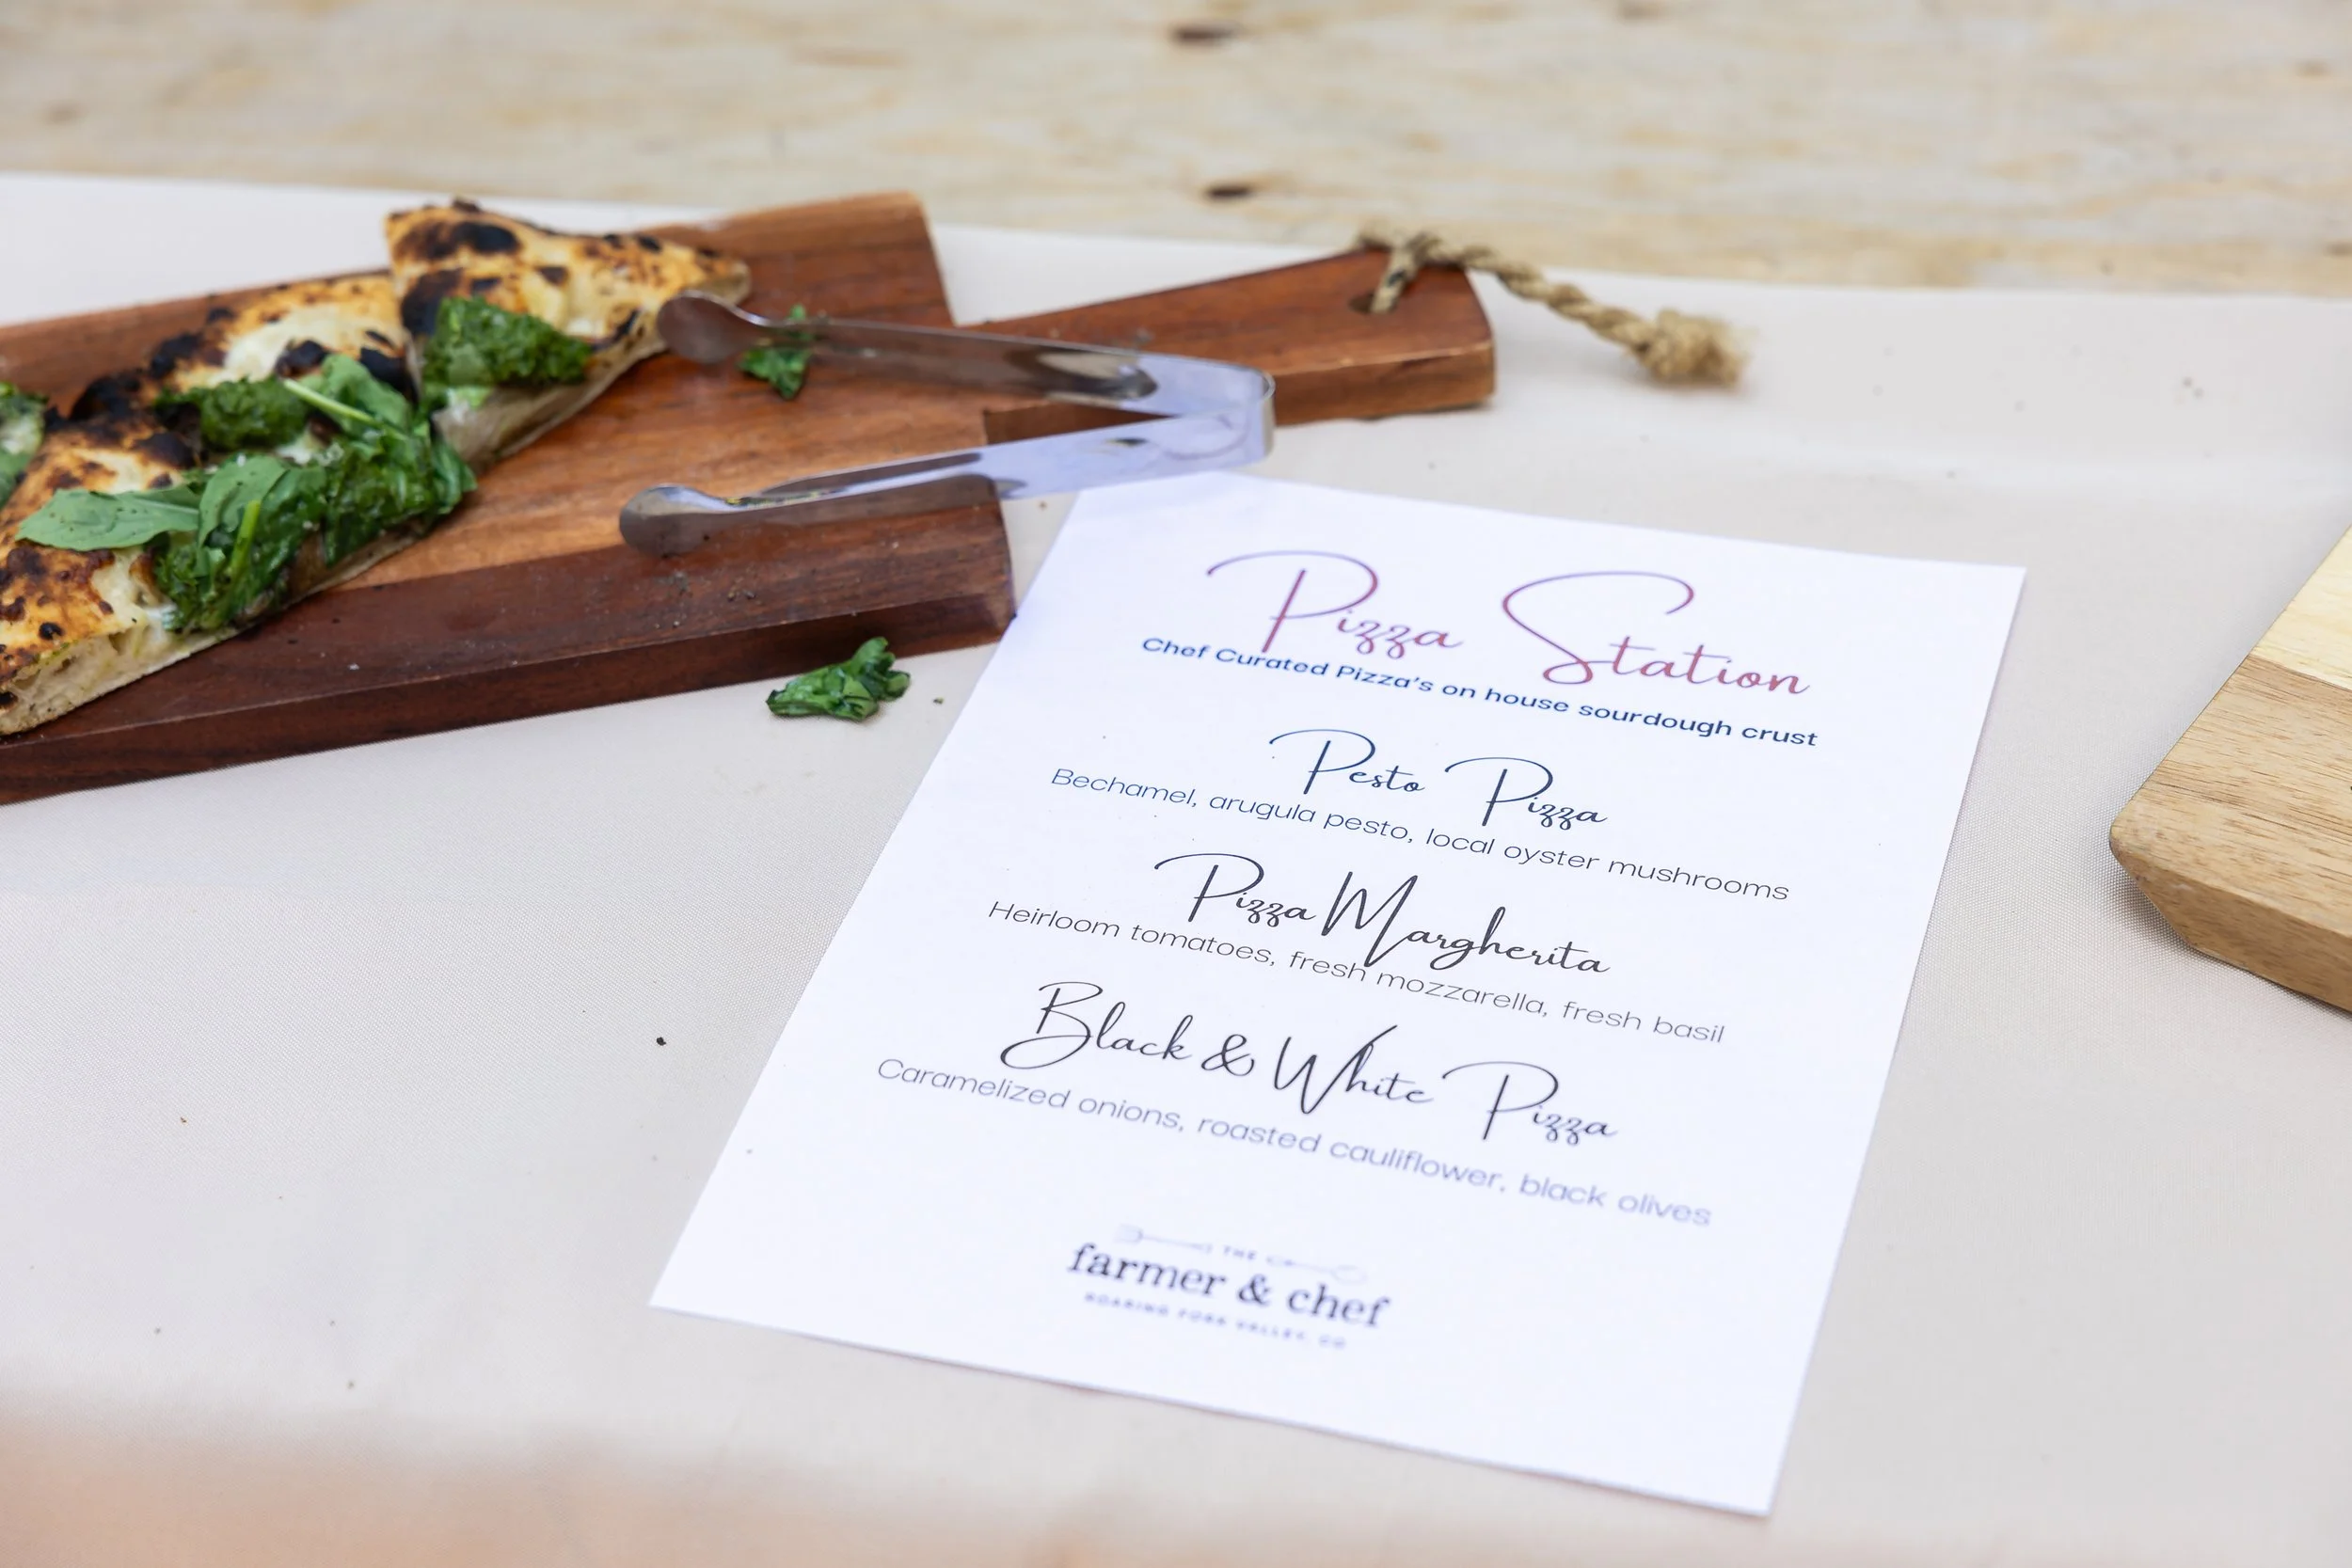 Pizza Station
Chef Curated Pizza's on house sourdough crust
Pesto Pizza
Bechamel, arugula pesto, local oyster mushrooms
Pizza Margherita
Heirloom tomatoes, fresh mozzarella, fresh basil
Black & White Pizza
Caramelized onions, roasted cauliflower, black olives
THE
farmer & chef
ROARING FORK VALLEY, CO